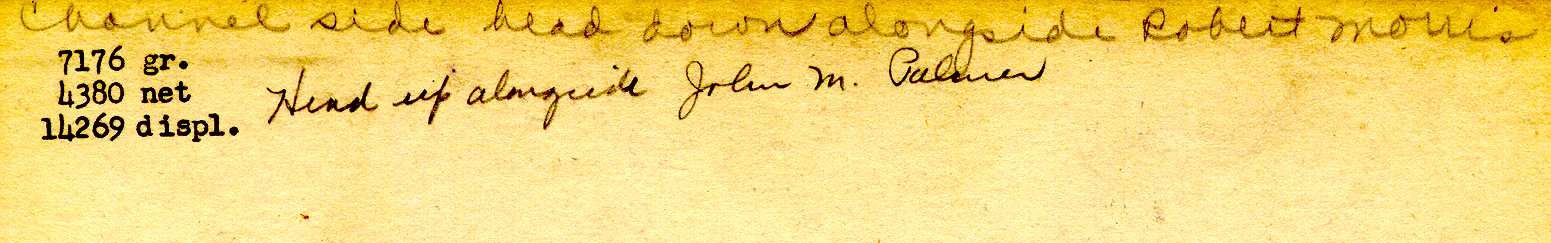 Channel side head down alongside Robert Morris
7176 gr.
4380 net
14269 displ.
Head up alongside John M. Palmer